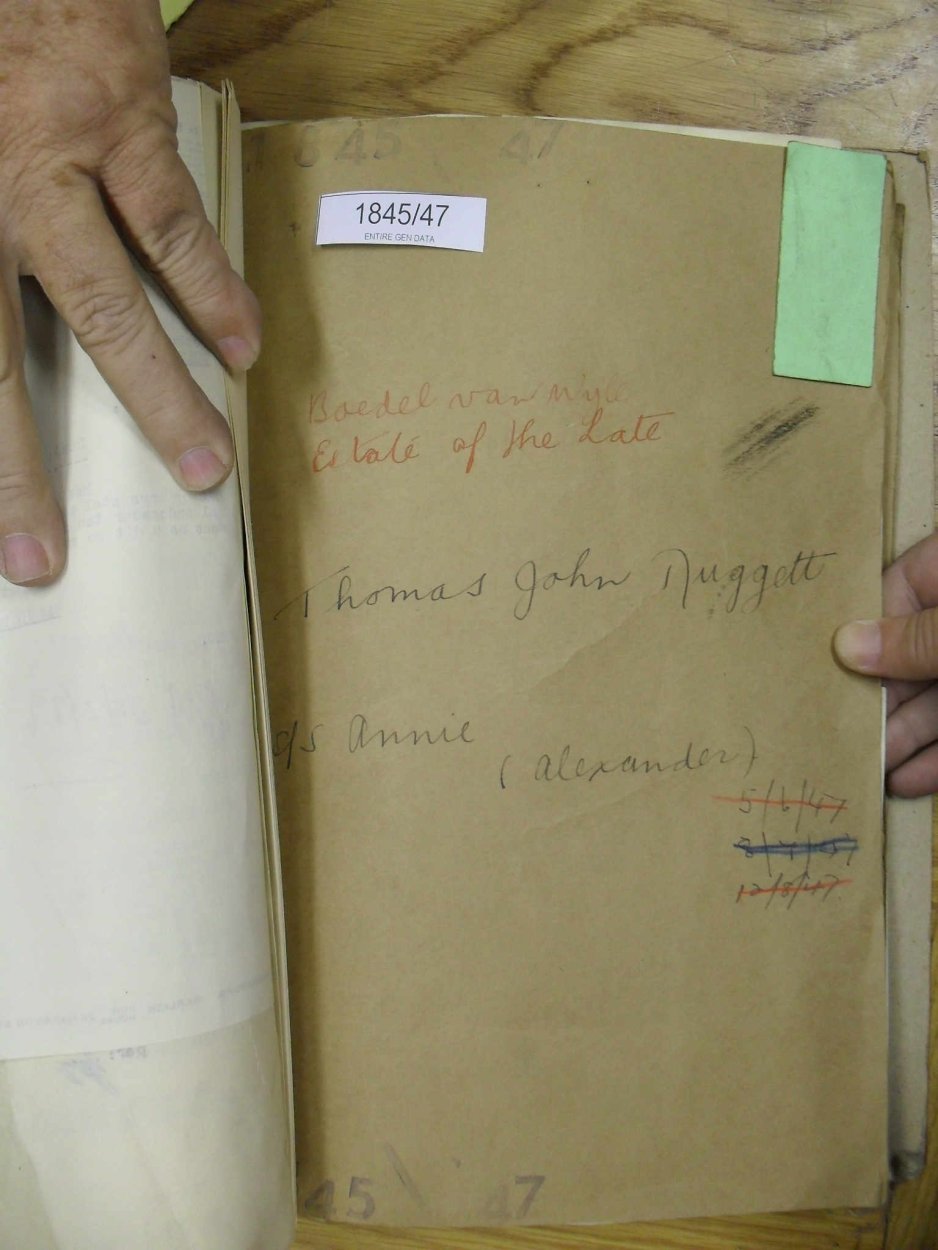 1845 47
1845/47
ENTIRE GEN DATA
Boedel van Wyle
Estate of the Late
Thomas John Nuggett
d/s Annie
(Alexander)
5/6/47
8/7/47
12/8/47
45 47